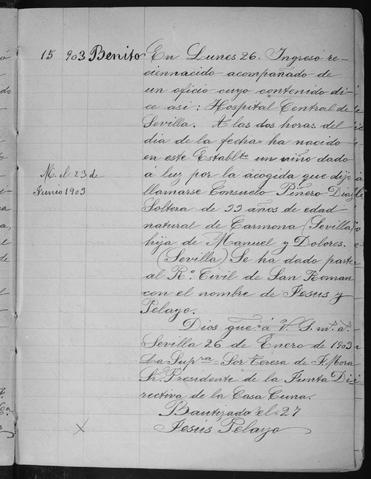 15 903 Benito En Lunes 26. Ingresó re-
ciennacido acompañado de
un oficio cuyo contenido di-
ce asi: Hospital Central de
Sevilla. A las dos horas del
dia de la fecha ha nacido
en este Establto un niño dado
M. el 23 de
Junio 1903
á luz por la acogida que dijo
llamarse Consuelo Piñero Dias
Soltera de 22 años de edad
natural de Carmona (Sevilla)
hija de Manuel y Dolores.
(Sevilla) Se ha dado parte
al Ro. Civil de San Roman
con el nombre de Jesus y
Pelayo.
Dios gue á V. S. ms. as.
Sevilla 26 de Enero de 1903
La Supra Sor Teresa de
Sr. Presidente de la Junta Di-
rectiva de la Casa Cuna.
Bautizado el 27
X Jesús Pelayo